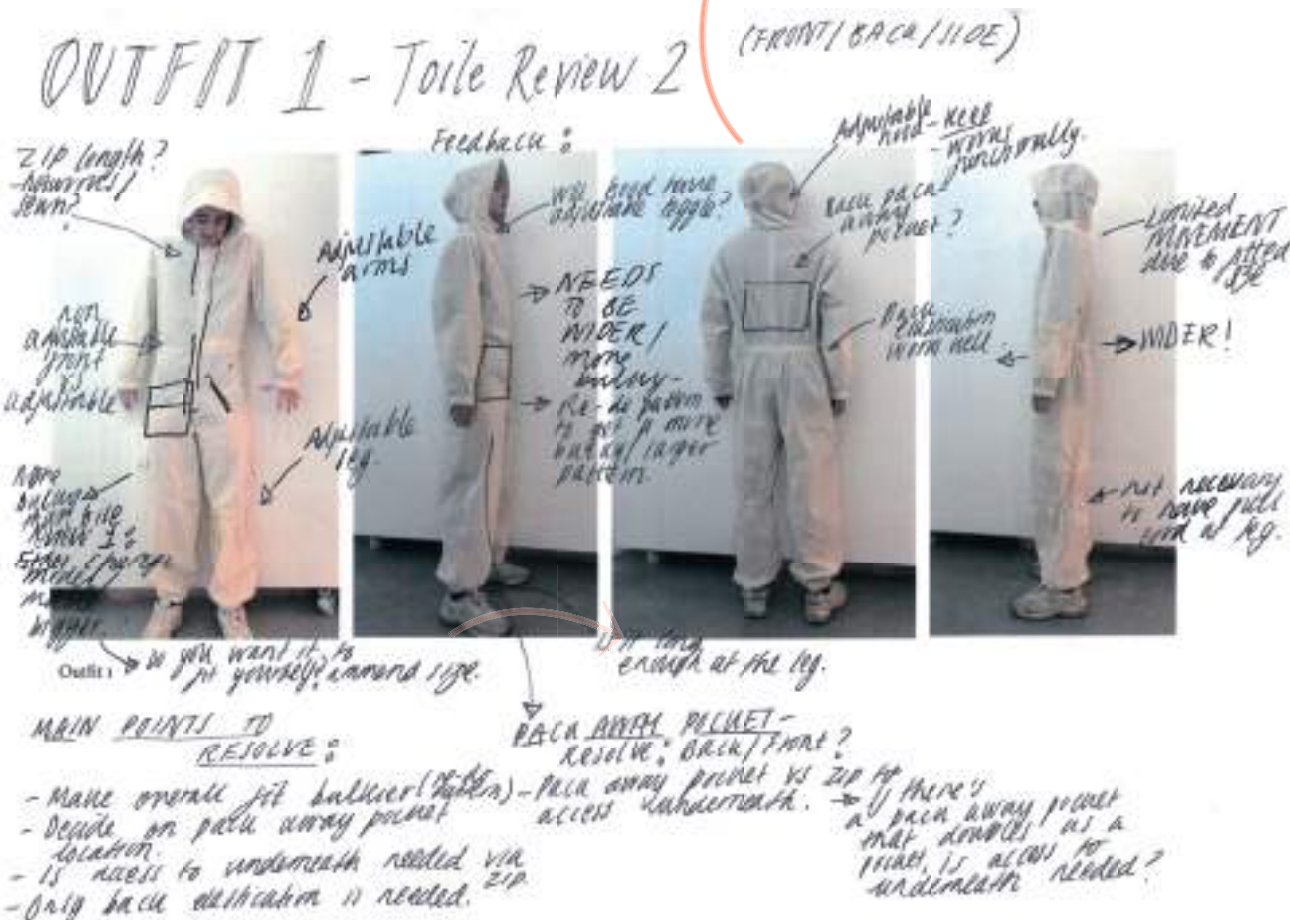 OUTFIT 1 - Toile Review 2
(FRONT/BACK/SIDE)
Feedback:
ZIP length?
sewn?
Adjustable
arms
Non
front
is
adjustable
Adjustable
leg.
More
Either change
model/
bigger
Do you want it to
fit yourself? ammend size.
Outfit 1
will hood have
adjustable toggle?
NEEDS
TO BE
WIDER/
more
bulky-
Re-do pattern
to get a more
bulky/larger
pattern.
Adjustable
hood - here
works
functionally.
Back pack
away
pocket?
Back
elastication
work well.
is it long
enough at the leg.
Limited
MOVEMENT
due to fitted
size
WIDER!
not necessary
to have pull
cord at leg.
MAIN POINTS TO
RESOLVE:
- Make overall fit bulkier (re-do pattern)
- Decide on pack away pocket
location.
- Is access to underneath needed via
zip.
- Only back elastication is needed.
PACK AWAY POCKET -
Resolve: Back/Front?
- Pack away pocket vs zip to
access underneath.
If there's
a pack away pocket
that doubles as a
pocket, is access to
underneath needed?